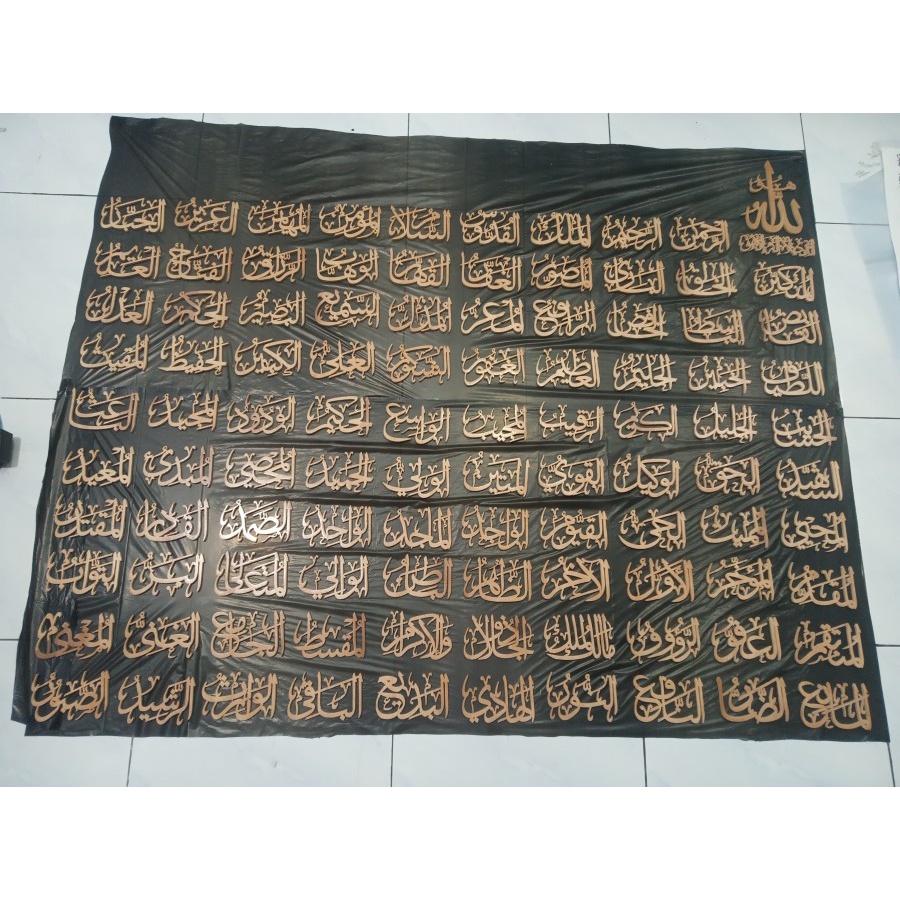 الله
الرحمن الرحيم الملك القدوس السلام المؤمن المهيمن العزيز الجبار
المتكبر الخالق البارئ المصور الغفار القهار الوهاب الرزاق الفتاح العليم
القابض الباسط الخافض الرافع المعز المذل السميع البصير الحكم العدل
اللطيف الخبير الحليم العظيم الغفور الشكور العلي الكبير الحفيظ المقيت
الحسيب الجليل الكريم الرقيب المجيب الواسع الحكيم الودود المجيد الباعث
الشهيد الحق الوكيل القوي المتين الولي الحميد المحصي المبدئ المعيد
المحيي المميت الحي القيوم الواجد الماجد الواحد الصمد القادر المقتدر
المقدم المؤخر الأول الآخر الظاهر الباطن الوالي المتعالي البر التواب
المنتقم العفو الرؤوف مالك الملك ذو الجلال والإكرام المقسط الجامع الغني المغني
المانع الضار النافع النور الهادي البديع الباقي الوارث الرشيد الصبور